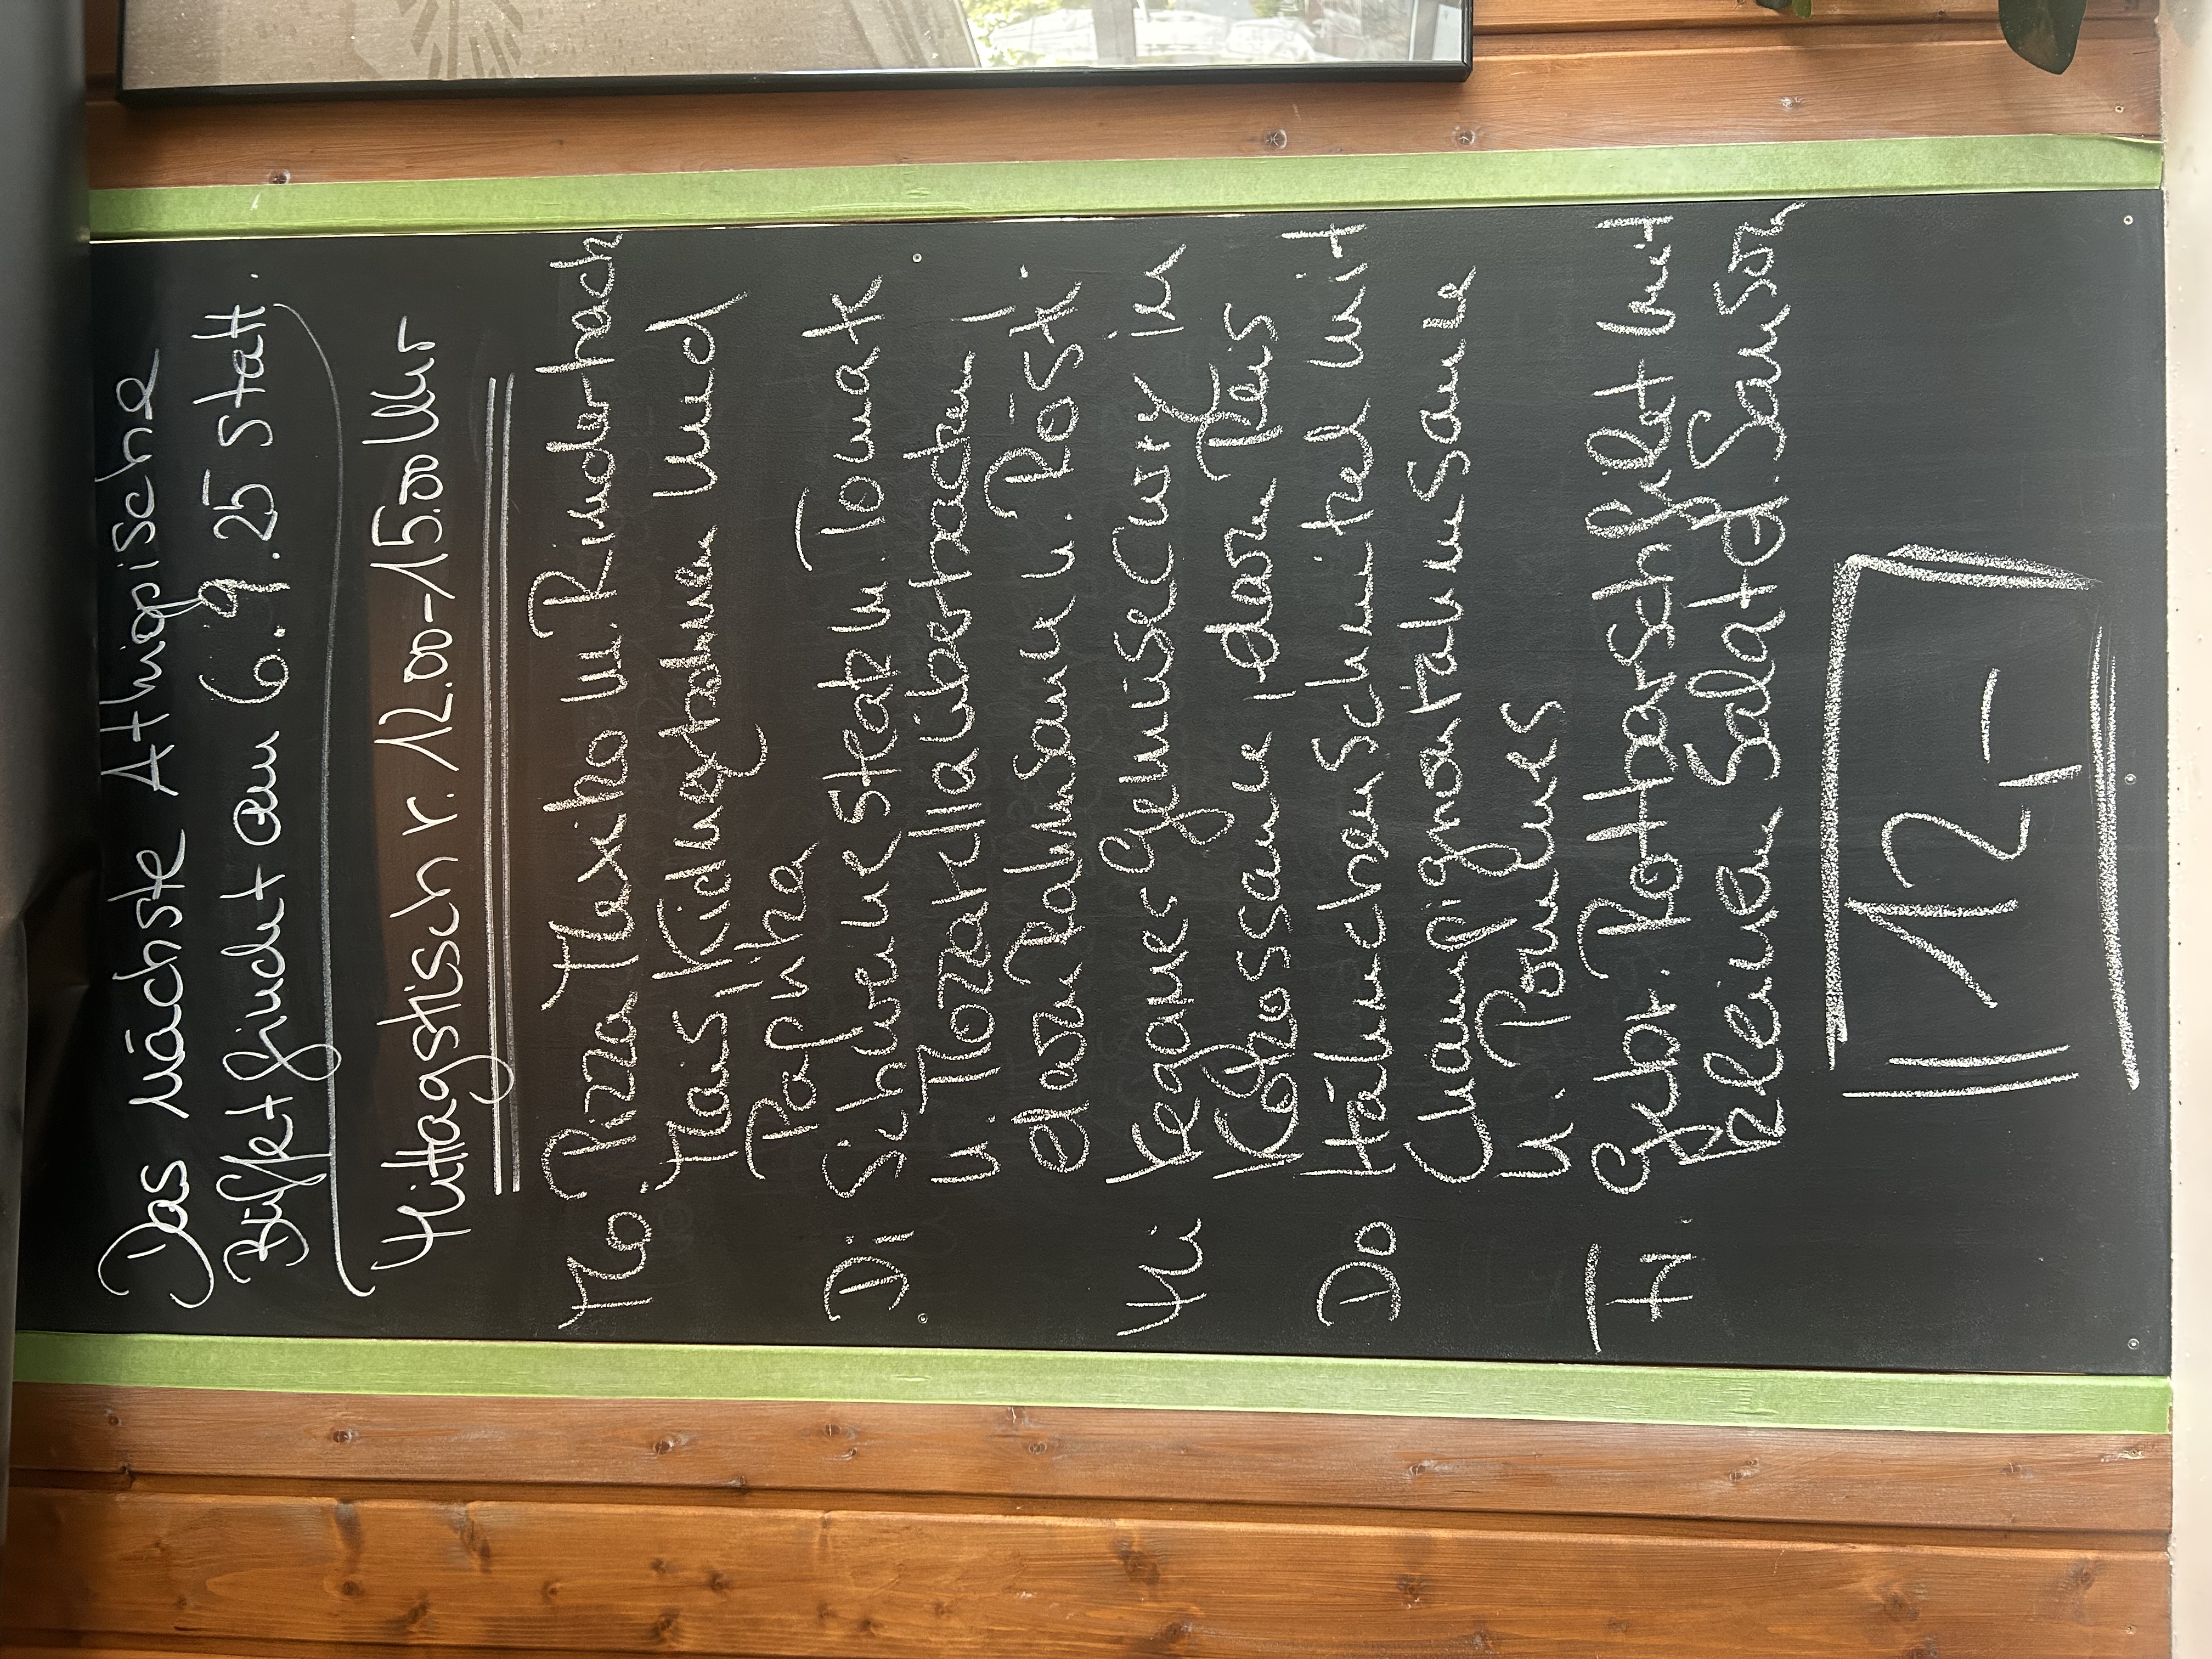 Das nächste Äthiopische
Büffet findet am 6.9.25 statt.
Mittagstisch v. 12.00-15.00 Uhr
Mo. Pizza Mexiko m. Rinderhack
Mais, Kidneybohnen und
Paprika
Di Schweinesteak m. Tomate
u. Mozarella überbacken,
dazu Rahmsauce u. Rösti
Mi Veganes Gemüse Curry in
Kokossauce, dazu Reis
Do Hähnchen Schnitzel mit
Champignonrahmsauce
u. Pommes
Fr. Gebr. Rotbarschfilet mit
kleinen Salat & Sauce
12,-